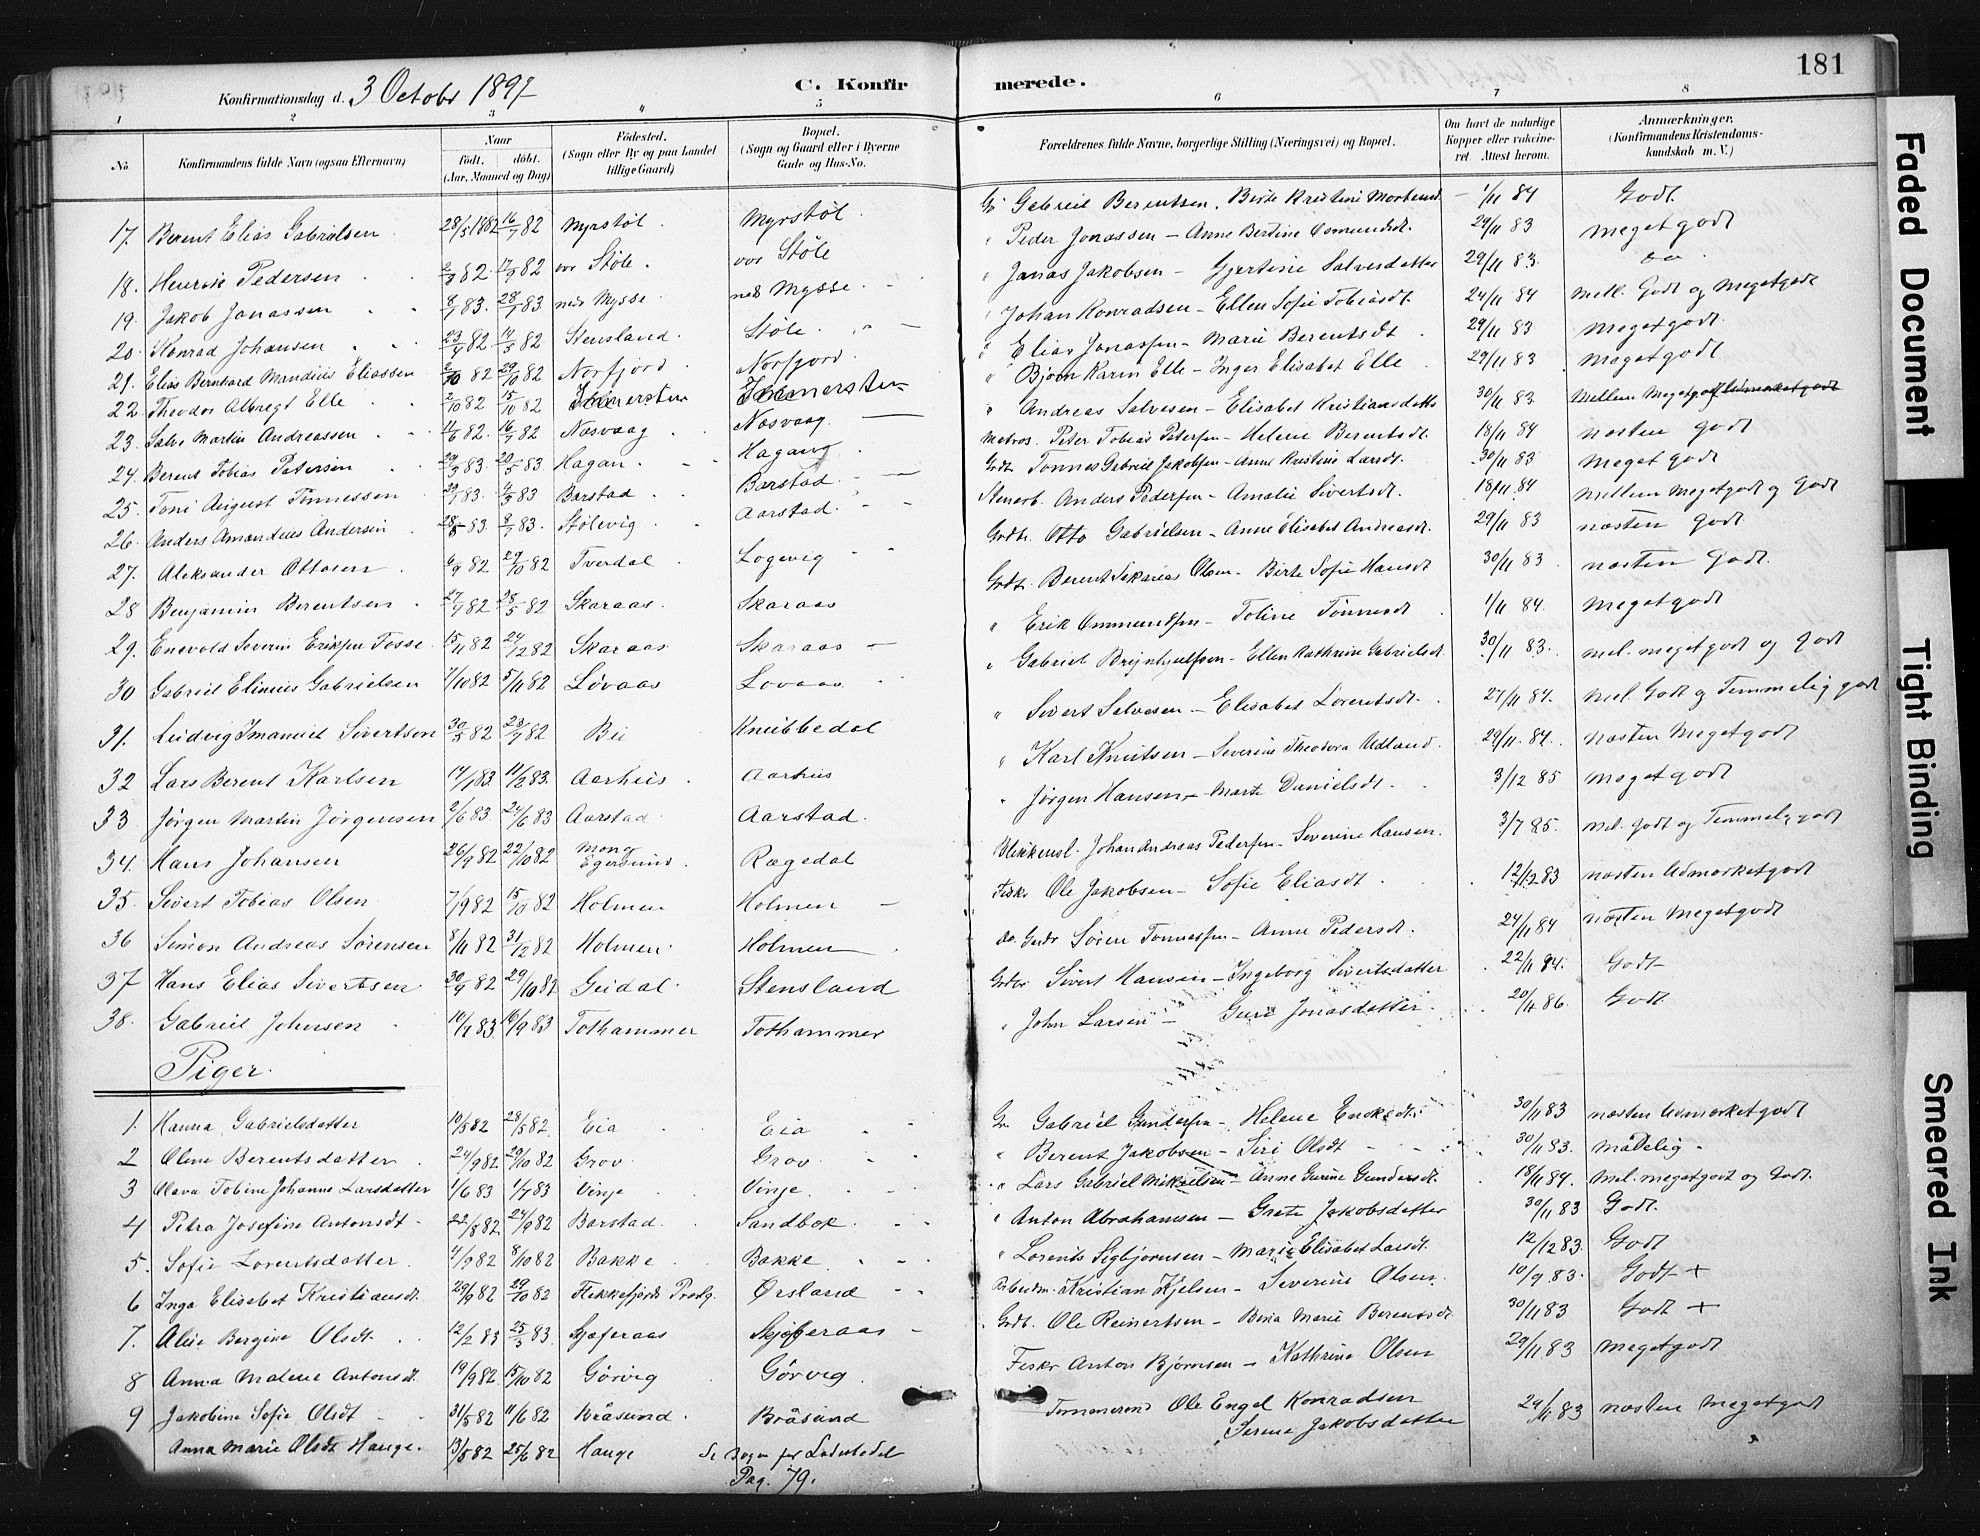 181
Konfirmationsdag d. 3 Octobr 1897
C. Konfirmerede.
1 2 3 4 5 6 7 8
No
Konfirmandens fulde Navn (ogsaa Efternavn)
Naar født. døbt. (Aar, Maaned og Dag)
Fødested. (Sogn eller By og paa Landet tillige Gaard)
Bopæl. (Sogn og Gaard eller i Byerne Gade og Hus-No.
Forældrenes fulde Navne, borgerlige Stilling (Næringsvei) og Bopæl.
Om havt de naturlige Kopper eller vaccineret. Attest herom.
Anmærkninger. (Konfirmandens Kristendomskundskab m. V.)
17. Berent Elias Gabrielsen 28/5 1882 16/7 82 Myrstöl Myrstöl Gabriel Berentsen, Birte Kristine 1/11 84 Godt
18. Henrik Pedersen 82 17/9 82 Stöle Stöle Peder Jonassen - Anne Bertine Omundsdt. 29/11 83 meget godt
19. Jakob Jonassen 8/1 83. 28/1 83 ned Mysse ned Mysse Jonas Jakobsen - Gjertine Salvesdatter 29/11 83
20. Konrad Johansen 23/4 82 14/5 82 Stensland Stöle Johan Konradsen - Ellen Sofie Tobiasdt. 24/11 84 mell. Godt og Megetgodt
21. Elias Bernhard Mandius Eliassen 2/10 82 29/10 82 Norfjord Norfjord Elias Jonassen - Marie Berentsdt 29/11 83 megetgodt
22. Theodor Albregt Elle 2/10 82 15/10 82 Bjørn Karin Elle - Inger Elisabet Elle 29/11 83 megetgodt
23. Salve Martin Andreassen 11/6 82. 16/7 82 Nesvaag Nesvaag Andreas Salvesen - Elisabet Kristiansdatter 30/11 83 Mellem Megetgodt
24. Berent Tobias Petersen 83. 20/5 83 Hagan Hagan Matros. Peter Tobias Petersen - Helene Berentsdt. 18/11 84 næsten godt
25. Toni August Tönnessen 83. 4/3 83 Barstad Barstad Gdb. Tönnes Gabriel Jakobsen - Anne Kristine Larsdt. 30/11 83 Meget godt
26. Anders Amandius Andersen 83. 8/7 83. Stölevig Aarstad Stenarb. Anders Pedersen - Amalie Sivertsdt. 18/11 84 mellem megetgodt og Godt
27. Aleksander Ottosen 6/9 82 29/10 82 Tverdal Logevig Gdbr. Otto Gabrielsen - Anne Elisabet Andreasdt. 29/11 83 næsten godt
28 Benjamin Berentsen 27/4 82 28/5 82 Skaraas Skaraas Gdbr. Berent Sakarias Olsen - Birte Sofie Hansdt 30/11 83 næsten Godt.
29. Enevold Severin Eriksen Fosse 15/11 82 24/12 82 Skaraas Skaraas Erik Ommundsen - Toline Tönnesdt 1/11 84. Megetgodt
30 Gabriel Elinius Gabrielsen 7/10 82 5/11 82 Lövaas Lovaas Gabriel Brynhyulfsen - Ellen Kathrine Gabrielsdt 30/11 83. mel. megetgodt og godt
31. Ludvig Imanuel Sivertsen 30/5 82 23/7 82 Bu Knubbedal Sivert Salvesen - Elisabet Lorentsdt. 27/11 84. mel. Godt og Temmelig godt
32 Lars Berent Karlsen 14/1 83. 11/2 83. Aarhus Aarhus Karl Knutsen - Severine Theodora Udland. 29/11 84. næsten Megetgodt
33 Jørgen Martin Jørgensen 2/6 83 24/6 83 Aarstad Aarstad. Jørgen Hansen - Marte Danielsdt. 3/12 85 megetgodt
34. Hans Johansen 26/9 82 22/10 82 Mong Egersund Rægedal Blikkensl. Johan Andreas Pedersen - Severine Hansen. 3/7 85. mel. godt og Temmelig godt
35. Sivert Tobias Olsen 7/9 82 15/10 82 Holmen Holmen Fisker Ole Jakobsen - Sofie Eliasdt. 12/12 83 næsten Udmærketgodt
36 Simon Andreas Sörensen 8/11 82 31/12 82 Holmen Holmen do. Gdbr. Sören Tönnessen - Anne Pedersdt. 24/11 84 næsten Megetgodt
37 Hans Elias Sivertsen 30/9 82 29/10 82 Geidal Stensland Gdbr. Sivert Hansen - Ingeborg Sivertsdatter 22/11 84. Godt
38. Gabriel Johnsen 10/7 83. 16/9 83 Tothammer Tothammer John Larsen - Guri Jonasdatter. 20/11 86 Godt.
Piger.
1. Hanna Gabrielsdatter 10/5 82 28/5 82 Eia Eia Gabriel Gundersen - Helene Eriksdt. 30/11 83 næsten Udmærketgodt
2 Oline Berentsdatter 24/9 82 29/10 82 Grov Grov Berent Jakobsen - Siri Olsdt 30/11 83. mådelig
3 Olava Tobine Johanne Larsdatter 1/6 83 1/7 83 Vinje Vinje Lars Gabriel Mikelsen - Anne Gurine Gundersdt. 18/11 84. mel. megetgodt og Godt.
4 Petra Josefine Antonsdt 22/8 82 24/9 82 Barstad. Sandbæk Anton Abrahamsen - Grete Jakobsdatter 30/11 83 Godt.
5. Sofie Lorentsdatter. 4/9 82 8/10 82 Bakke Bakke Lorents Sigbjörnsen - Marie Elisabet Larsdt. 12/12 83. Godt
6 Inga Elisabet Kristiansdt. 29/9 82 29/10 82 Flekkefjords Prestg. Örsland Arbeidsm. Kristian Kjelsen - Severine Olsen. 10/9 83. Godt +
7. Aline Bergine Olsdt. 12/2 83 25/3 83 Skjæferaas Gdb. Ole Reinertsen - Bina Marie Berentsdt 30/11 83 Godt +
8 Anna Malene Antonsdt. 19/9 82. 15/10 82 Görvig Görvig Fisker Anton Björnsen - Kathrine Olsen 29/11 83 megetgodt
9 Jakobine Sofie Olsdt 31/5 82 11/6 82 Bråsund Bråsund Tömmermand Ole Engel Konradsen 29/11 83 næsten Megetgodt
Serine Jakobsdatter
Anna Marie Olsdt Hauge. 13/5 82 25/6 82 Hauge Se Bogen for Ladestedet
Pag. 79.
Faded Document
Tight Binding
Smeared Ink